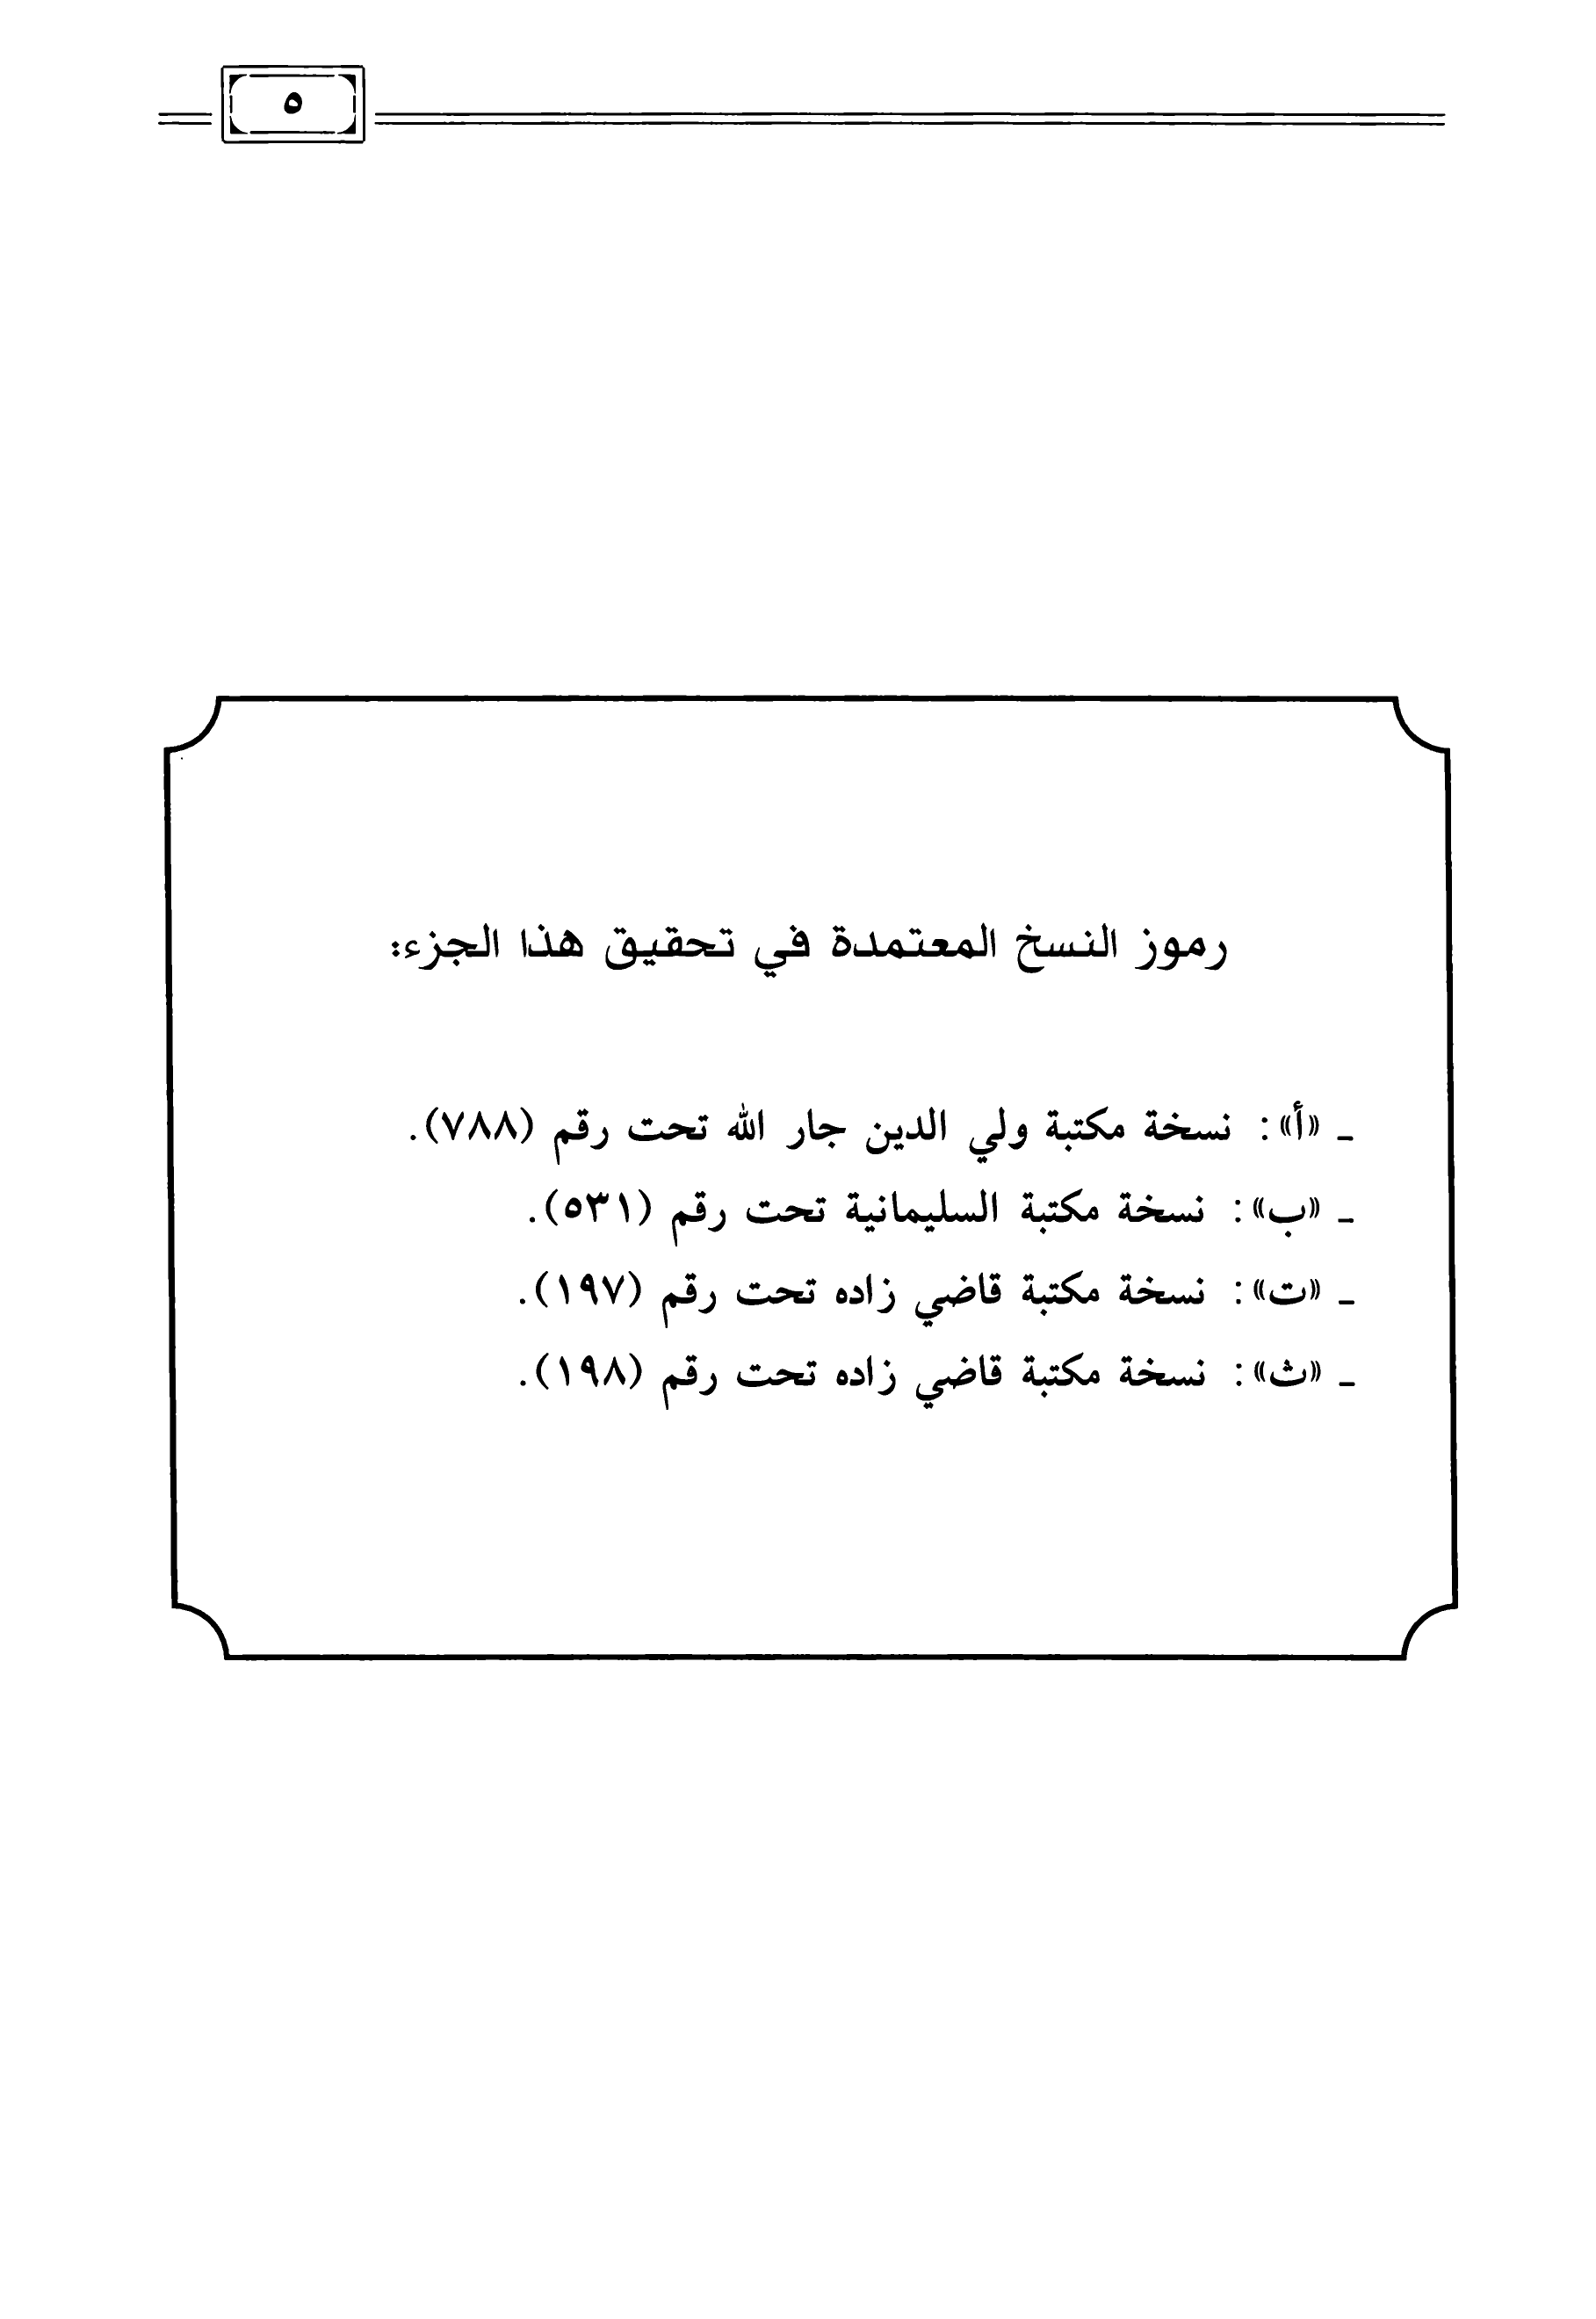 ٥
رموز النسخ المعتمدة في تحقيق هذا الجزء:
ـ «أ»: نسخة مكتبة ولي الدين جار الله تحت رقم (٧٨٨).
ـ «ب»: نسخة مكتبة السليمانية تحت رقم (٥٣١).
ـ «ت»: نسخة مكتبة قاضي زاده تحت رقم (١٩٧).
ـ «ث»: نسخة مكتبة قاضي زاده تحت رقم (١٩٨).